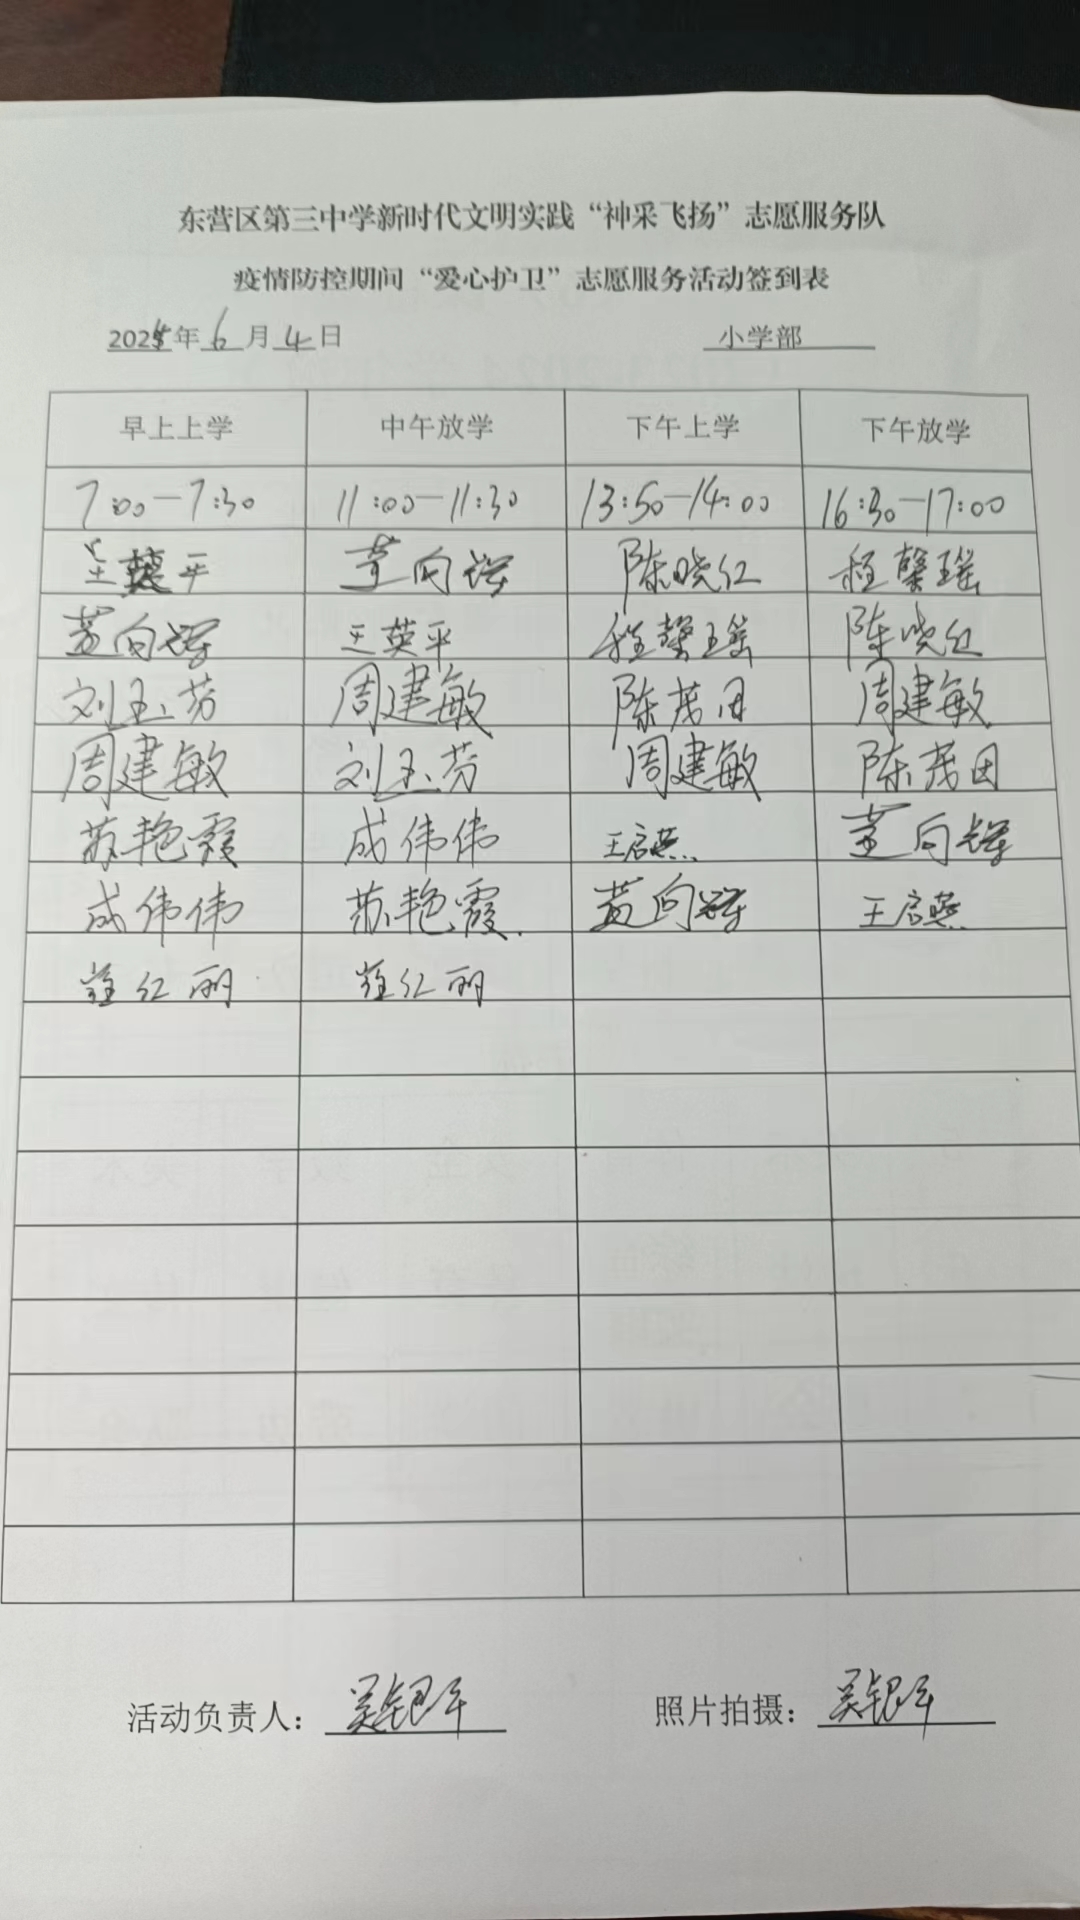 东营区第三中学新时代文明实践“神采飞扬”志愿服务队
疫情防控期间“爱心护卫”志愿服务活动签到表
年 6 月 4 日 小学部
早上上学 中午放学 下午上学 下午放学
7:00—7:30 11:00—11:30 13:50—14:00 16:30—17:00
王英平 向辉 陈晓红 程馨瑶
向辉 王英平 程馨瑶 陈晓红
刘玉芬 周建敏 陈茂因 周建敏
周建敏 刘玉芬 周建敏 陈茂因
苏艳霞 成伟伟 王启燕 向辉
成伟伟 苏艳霞 向辉 王启燕
红丽 红丽
活动负责人： 吴银平 照片拍摄： 吴银平